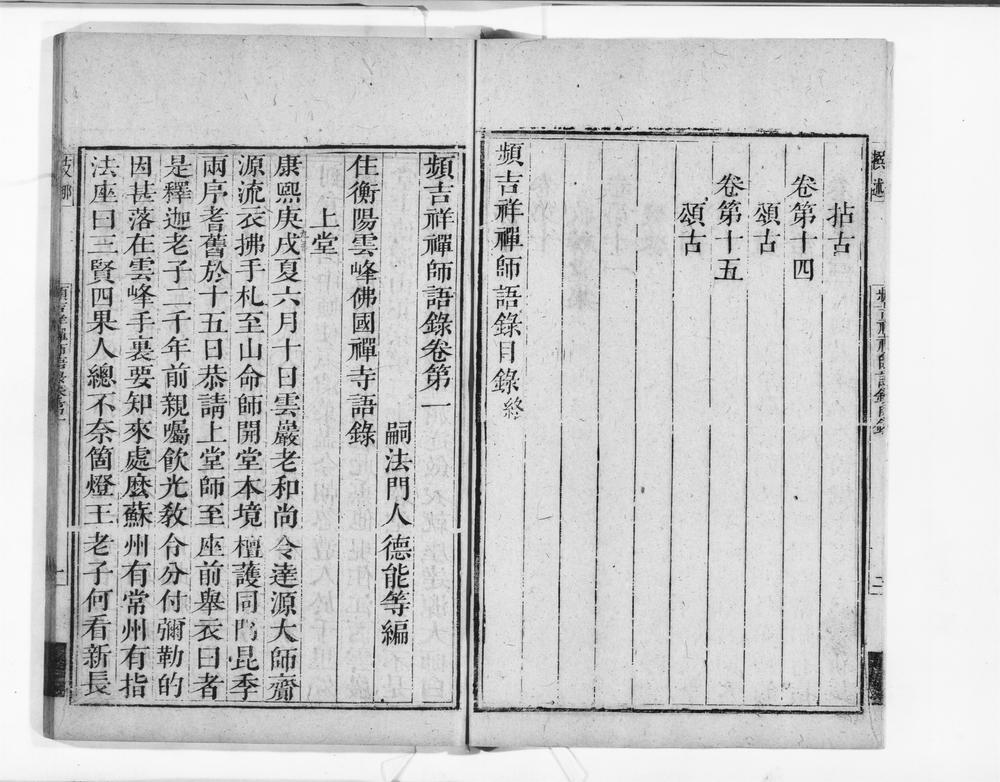 拈古
卷第十四
頌古
卷第十五
頌古
頻吉祥禪師語錄目錄終
頻吉祥禪師語錄卷第一
嗣法門人德能等編
住衡陽雲峰佛國禪寺語錄
上堂
康熙庚戌夏六月十日雲巖老和尚令達源大師齎
源流衣拂手札至山命師開堂本境檀護同門昆季
兩序耆舊於十五日恭請上堂師至座前舉衣曰者
是釋迦老子二千年前親囑飲光教令分付彌勒的
因甚落在雲峰手裏要知來處麼蘇州有常州有指
法座曰三賢四果人總不奈箇燈王老子何看新長